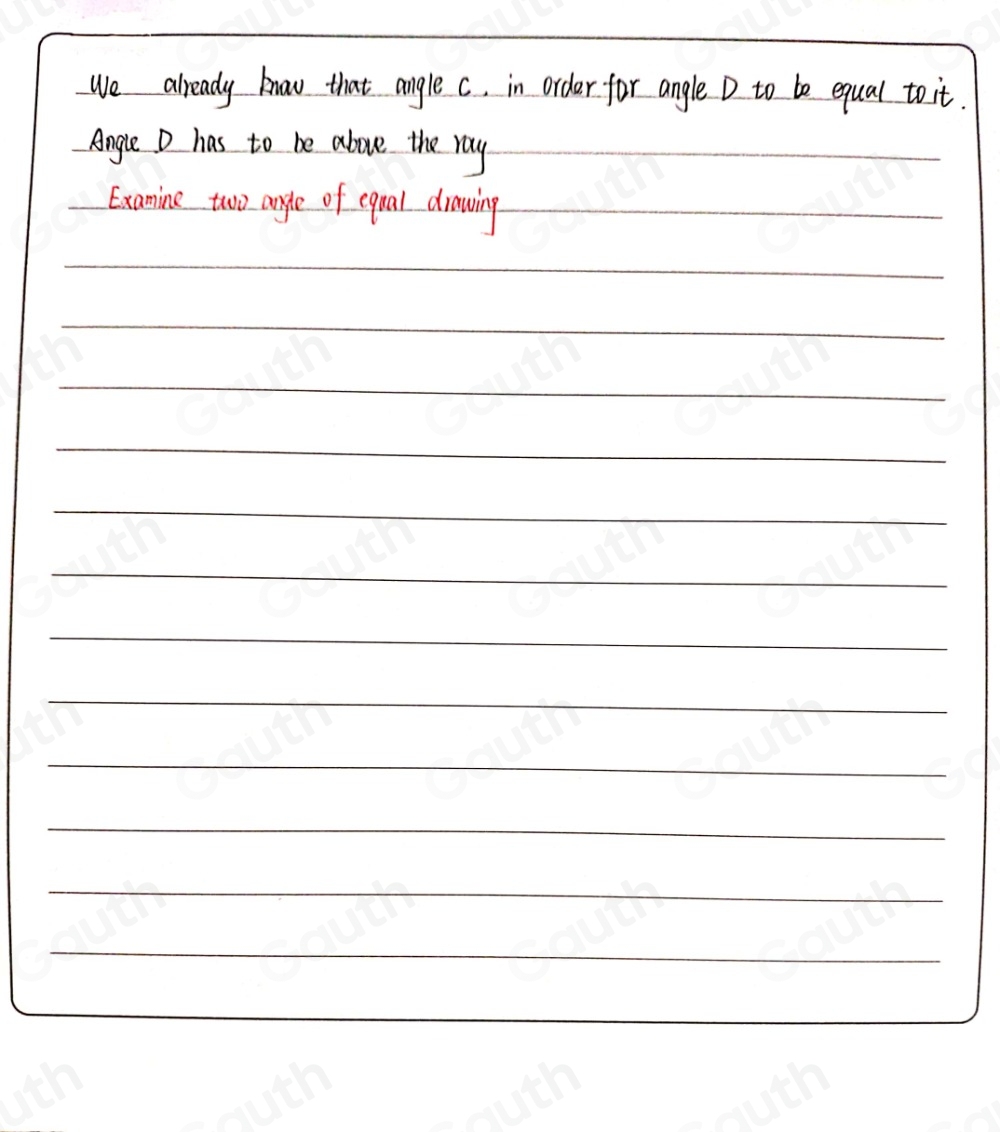 We already know that angle C. in order for angle D to be equal to it.
Angle D has to be above the ray
Examine two angle of equal drawing